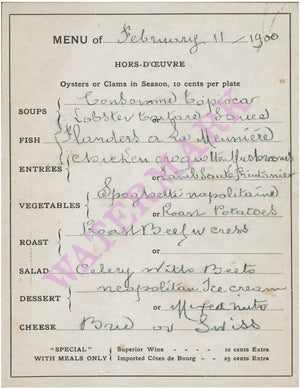 MENU of February 11 / 1900
HORS-D'ŒUVRE
Oysters or Clams in Season, 10 cents per plate
SOUPS Consomme Tapioca
Lobster Sauce
FISH Flanders a La Meunière
ENTRÉES Chicken croquette Mushrooms
or Lamb Printanier
VEGETABLES Spaghetti napolitaine
or Roast Potatoes
ROAST Roast Beef w cress
or
SALAD Celery With Beets
DESSERT neapolitan Ice cream
or Mixed nuts
CHEESE Brie or Swiss
"SPECIAL" WITH MEALS ONLY
Superior Wine - - - - 10 cents Extra
Imported Côtes de Bourg - - 25 cents Extra
WATERMARK